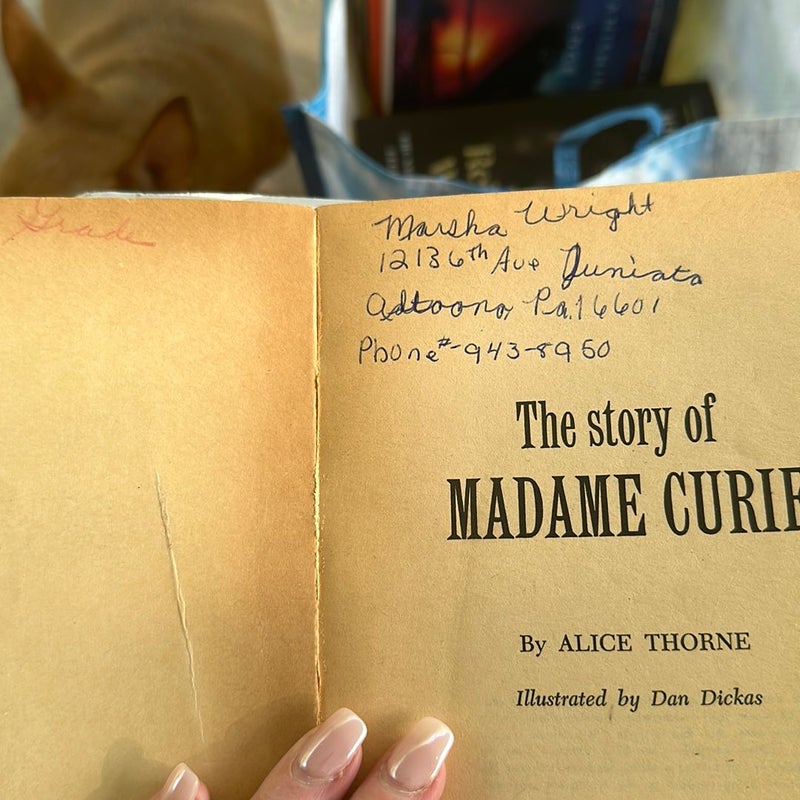 Grade
Marsha Wright
1213 6th Ave Juniata
Altoona Pa. 16601
Phone #-943-8950
The story of
MADAME CURIE
By ALICE THORNE
Illustrated by Dan Dickas